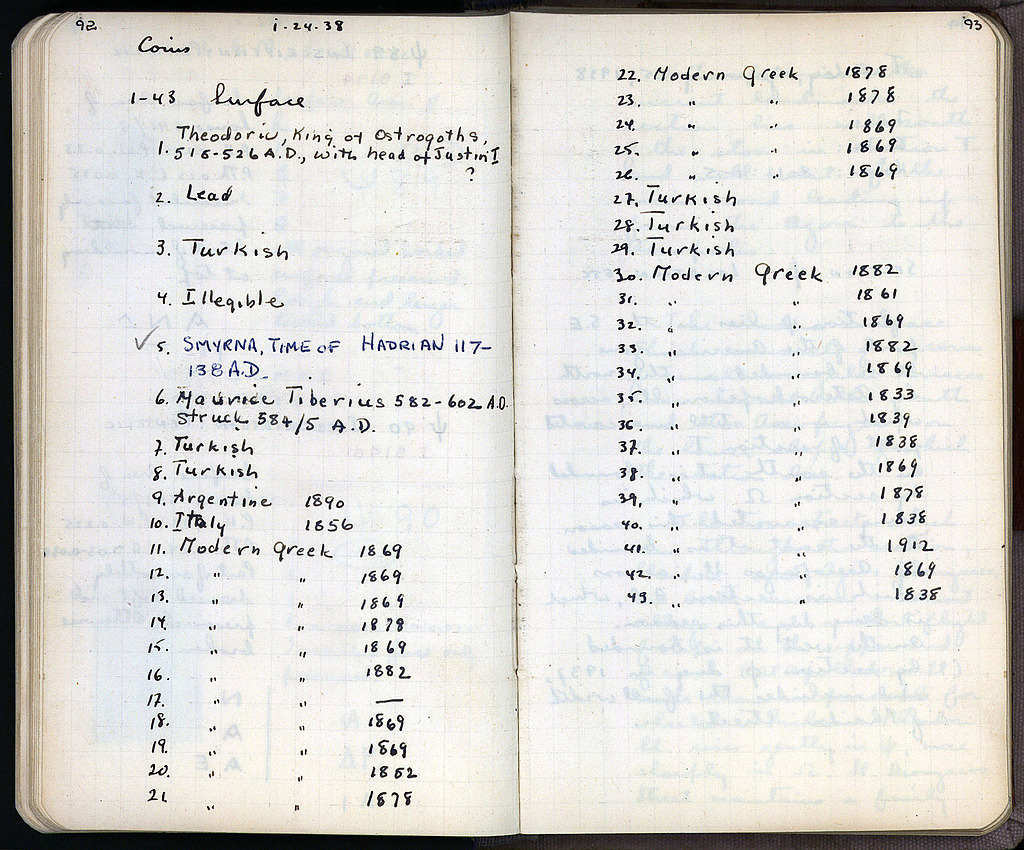 92
1-24-38
Coins
1-43 Surface
Theodoric, King of Ostrogoths,
1. 516-526 A.D., with head of Justin I
?
2. Lead
3. Turkish
4. Illegible
✓ 5. SMYRNA, TIME OF HADRIAN 117-
138 A.D.
6. Maurice Tiberius 582-602 A.D.
Struck 584/5 A.D.
7. Turkish
8. Turkish
9. Argentine 1890
10. Italy 1856
11. Modern Greek 1869
12. " " 1869
13. " " 1869
14. " " 1878
15. " " 1869
16. " " 1882
17. " " —
18. " " 1869
19. " " 1869
20. " " 1852
21. " " 1878
93
22. Modern Greek 1878
23. " " 1878
24. " " 1869
25. " " 1869
26. " " 1869
27. Turkish
28. Turkish
29. Turkish
30. Modern Greek 1882
31. " " 1861
32. " " 1869
33. " " 1882
34. " " 1869
35. " " 1833
36. " " 1839
37. " " 1838
38. " " 1869
39. " " 1878
40. " " 1838
41. " " 1912
42. " " 1869
43. " " 1838